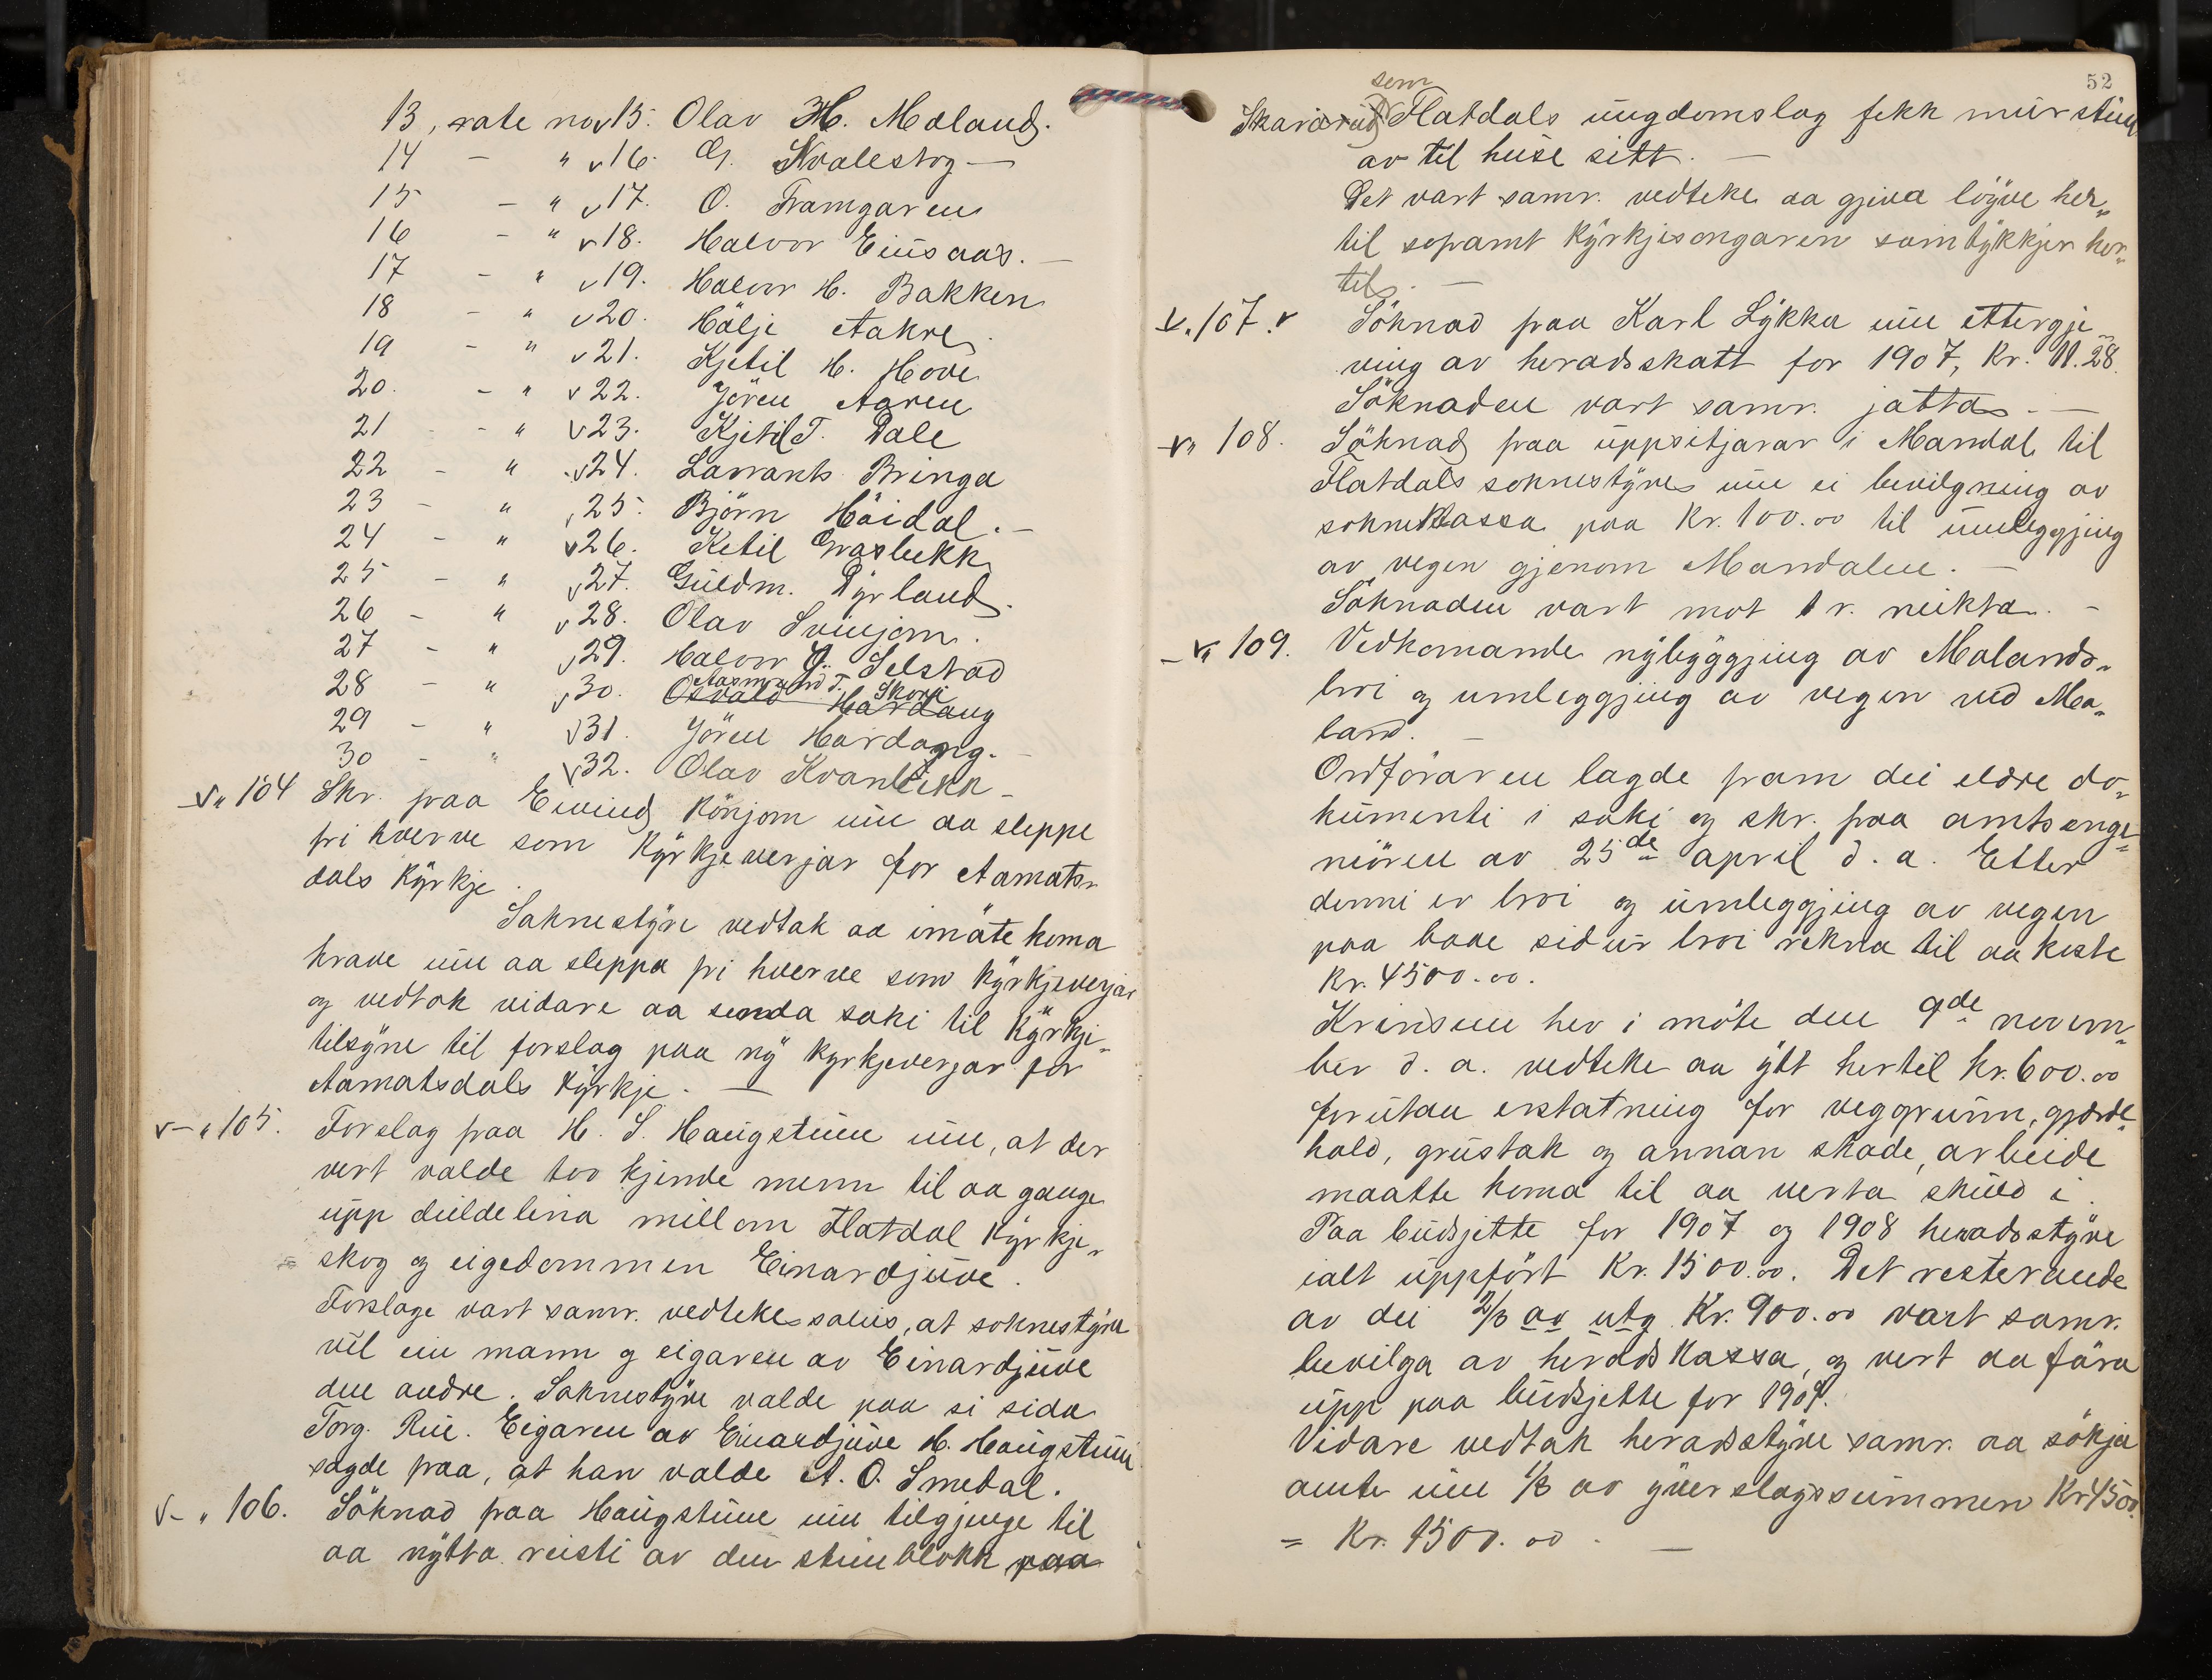 13, rate nov 15. Olav H. Moland.
14 - " v 16. G. Kvalestog -
15 - " v 17. O. Framgaren
16 - " v 18. Halvor Einsaas. -
17 - " v 19. Halvor H. Bakken
18 - " v 20. Hölje Aakre
19 - " v 21. Kjetil H. Hovi
20. - " v 22. Jören Agren
21 - " v 23. Kjetil T. Dale
22 - " v 24. Lavrants Bringa
23 - " , 25. Björn Höidal. -
24 - " v 26. Ketil Grasbekk
25 - " v 27. Guldm. Dyrland.
26 - " v 28. Olav Svinjom.
27 - " v 29. Halvor Ö. Selstad
Aasmund T. Skori
28 - " v 30. Osvald Hardang
29 - " v 31. Jören Hardang. -
30 - " v 32. Olav Kvanbekk -
v " 104 Skr. fraa Eivind Könjom um aa sleppe
fri hverve som Kyrkjeverjar for Aamots-
dals Kyrkje.
Soknestyre vedtok aa imöte koma
krave um aa sleppa fri hverve som Kyrkjeverjar
og vedtok vidare aa senda saki til Kyrkje-
tilsyne til forslag paa ny kyrkjeverjar for
Aamotsdals Kyrkje. -
v - " 105. Forslag fraa H. S. Haugstune um, at der
vert valde tvo kjende menn til aa gange
upp deildelina millom Flatdal Kyrkje-
skog og eigedommen Einardjuve.
Forslage vart samr. vedteke soleis, at soknestyre
vel ein mann og eigaren av Einardjuve
den andre. Soknestyre valde paa si sida
Torg. Rue. Eigaren av Einardjuve H. Haugstune
sagde fraa, at han valde A. O. Smedal.
v - " 106. Söknad fraa Haugstune um tilgjenge til
aa nytta reisti av den steinblokk paa
52
som
Skararud Flatdals ungdomslag fekk murstein
av til huse sitt. -
Det vart samr. vedteke aa gjeva löyve her-
til soframt Kyrkjesongaren samtykkjer her-
til. -
v. 107. v Söknad fraa Karl Lykka um ettergje-
ving av heradsskatt for 1907, Kr. 11.28.
Söknaden vart samr. jatta. -
v " 108. Söknad fraa uppsitjarar i Mandal til
Flatdals soknestyre um ei bevilgning av
soknekassa paa Kr. 100.00 til umleggjing
av vegen gjenom Mandalen. -
Söknaden vart mot 1 r. neikta. -
- v " 109. Vedkomande nybyggjing av Molands-
broi og umleggjing av vegen ved Mo-
land. -
Ordföraren lagde fram dei eldre do-
kumenti i saki og skr. fraa amtsenge-
niören av 25de april d. a. Etter
denni er broi og umleggjing av vegen
paa baae sidur broi rekna til aa koste
Kr. 4500.00.
Krinsen hev i möte den 9de novem-
ber d. a. vedteke aa ytt hertil kr. 600.00
forutan erstatning for veggrunn, gjerde-
hald, grustak og annan skade, arbeide
maatte koma til aa verta skuld i.
Paa budsjette for 1907 og 1908 heradsstyre
ialt uppfört Kr. 1500.00. Det resterande
av dei 2/3 av utg. Kr. 900.00 vart samr.
bevilga av heradskassa, og vert aa föra
upp paa budsjette for 1909.
Vidare vedtok heradsstyre samr. aa sökja
amte um 1/3 av yverslagssummen Kr 4500.
= Kr. 1500.00. -